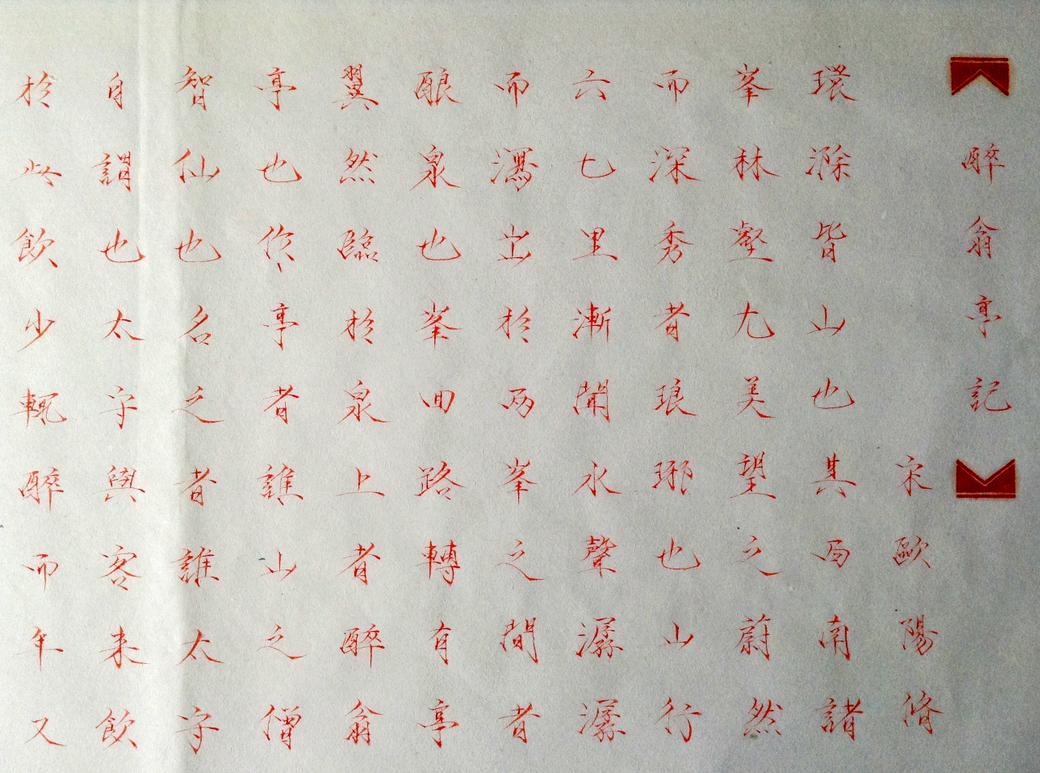 醉翁亭記
宋歐陽脩
環滁皆山也其西南諸
峯林壑尤美望之蔚然
而深秀者琅琊也山行
六七里漸聞水聲潺潺
而瀉出於兩峯之間者
釀泉也峯回路轉有亭
翼然臨於泉上者醉翁
亭也作亭者誰山之僧
智仙也名之者誰太守
自謂也太守與客来飲
於此飲少輒醉而年又